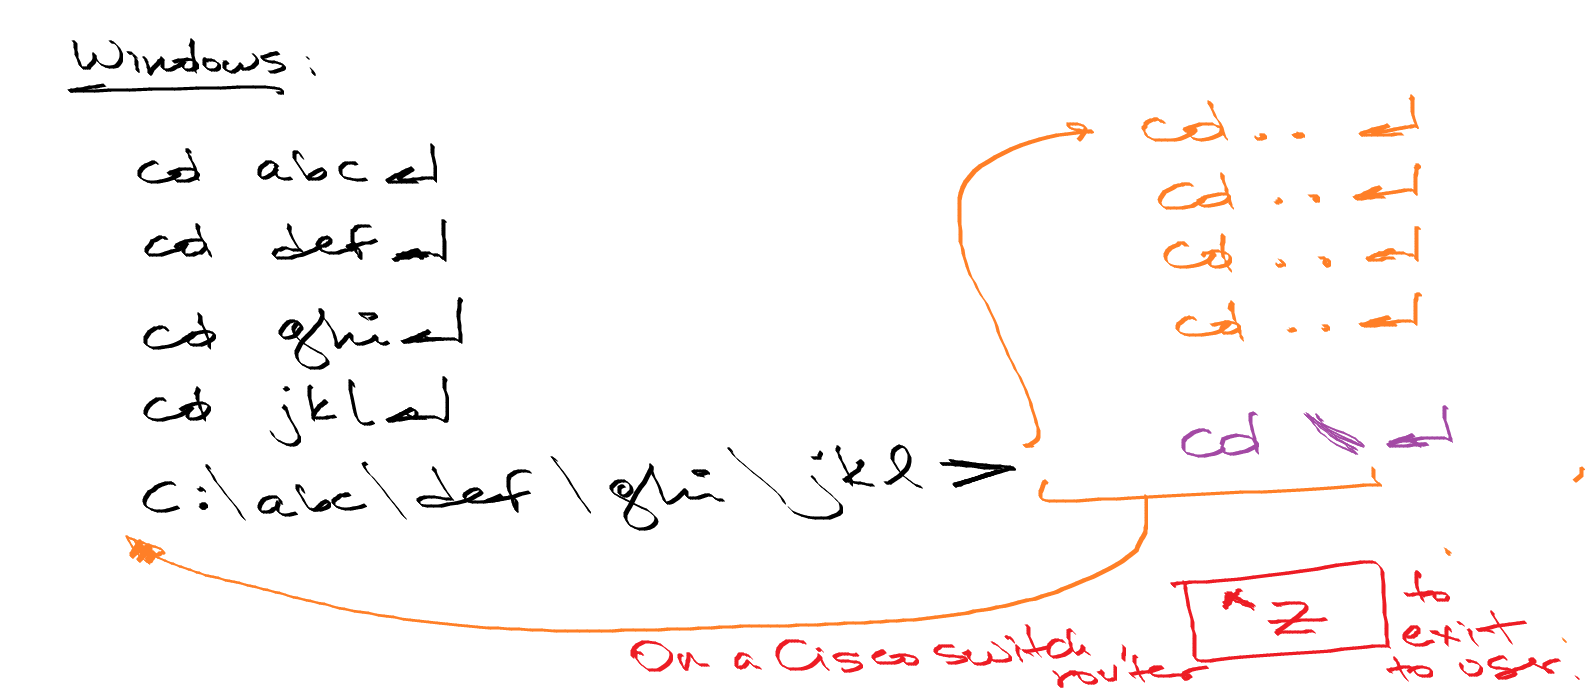 Windows:
cd abc ↵
cd def ↵
cd ghi ↵
cd jkl ↵
C:\abc\def\ghi\jkl >
cd.. ↵
cd .. ↵
cd .. ↵
cd .. ↵
cd \ ↵
On a Cisco switch
router
^Z
to
exit
to user.